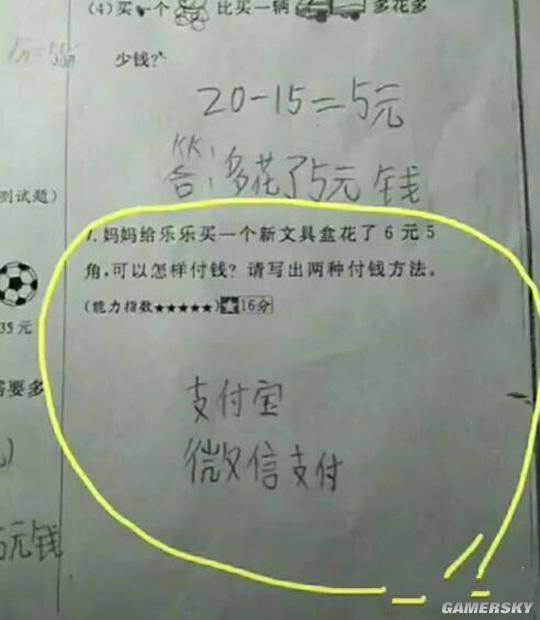 (4)买一个 比买一辆 多花多
少钱?
20-15=5元
答:多花了5元钱
测试题)
7.妈妈给乐乐买一个新文具盒花了6元5
角,可以怎样付钱?请写出两种付钱方法。
(能力指数★★★★★)★16分
35元
需要多
支付宝
微信支付
5元钱
GAMERSKY